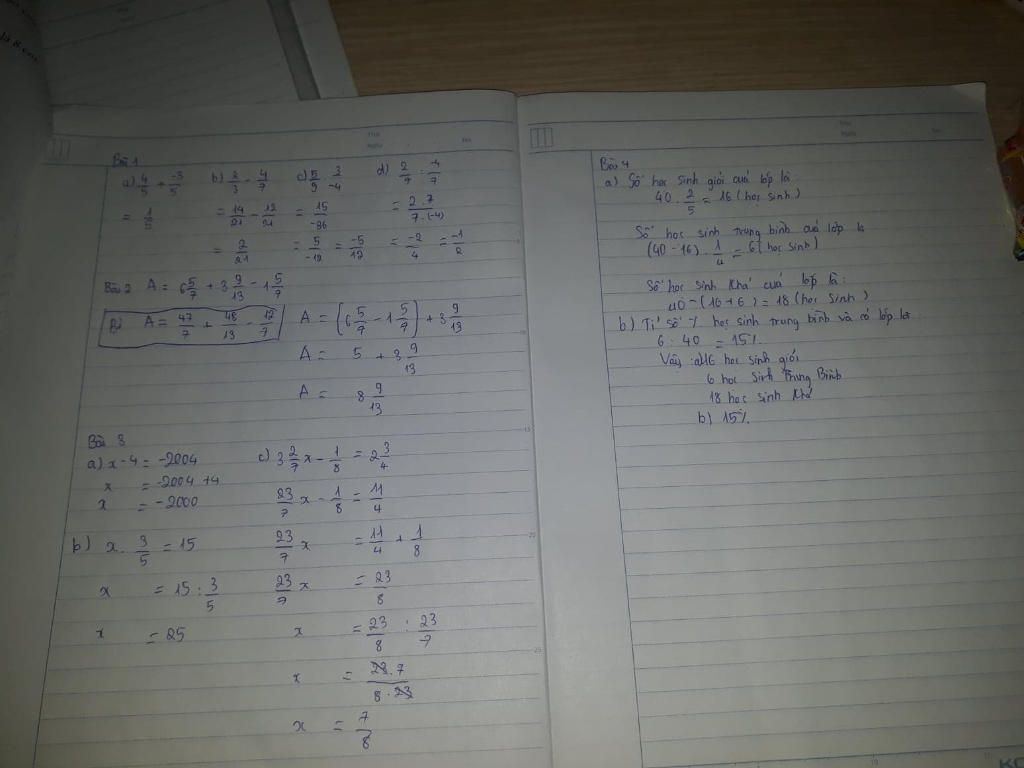 Bài 1
a) 4/5 + -3/5 b) 2/3 - 4/7 c) 5/9 . 3/-4 d) 2/7 : -4/7
= 1/5 = 14/21 - 12/21 = 15/-36 = 2.7/7.(-4)
= 2/21 = 5/-12 = -5/12 = -2/4 = -1/2
Bài 2 A = 6 5/7 + 3 9/13 - 1 5/7
A = 47/7 + 48/13 - 12/7 A = (6 5/7 - 1 5/7) + 3 9/13
A = 5 + 3 9/13
A = 8 9/13
Bài 3
a) x - 4 = -2004 c) 3 2/7 x - 1/8 = 2 3/4
x = -2004 + 4
x = -2000 23/7 x - 1/8 = 11/4
b) x . 3/5 = 15 23/7 x = 11/4 + 1/8
x = 15 : 3/5 23/7 x = 23/8
x = 25 x = 23/8 : 23/7
x = 23.7/8.23
x = 7/8
Bài 4
a) Số học sinh giỏi cuả lớp là:
40 . 2/5 = 16 (học sinh)
Số học sinh trung bình cuả lớp là
(40 - 16) . 1/4 = 6 (học sinh)
Số học sinh Khá cuả lớp là:
40 - (16 + 6) = 18 (học sinh)
b) Tỉ số % học sinh trung bình và cả lớp là
6 : 40 = 15%
Vậy : a) 16 học sinh giỏi
6 học sinh Trung Bình
18 học sinh Khá
b) 15%